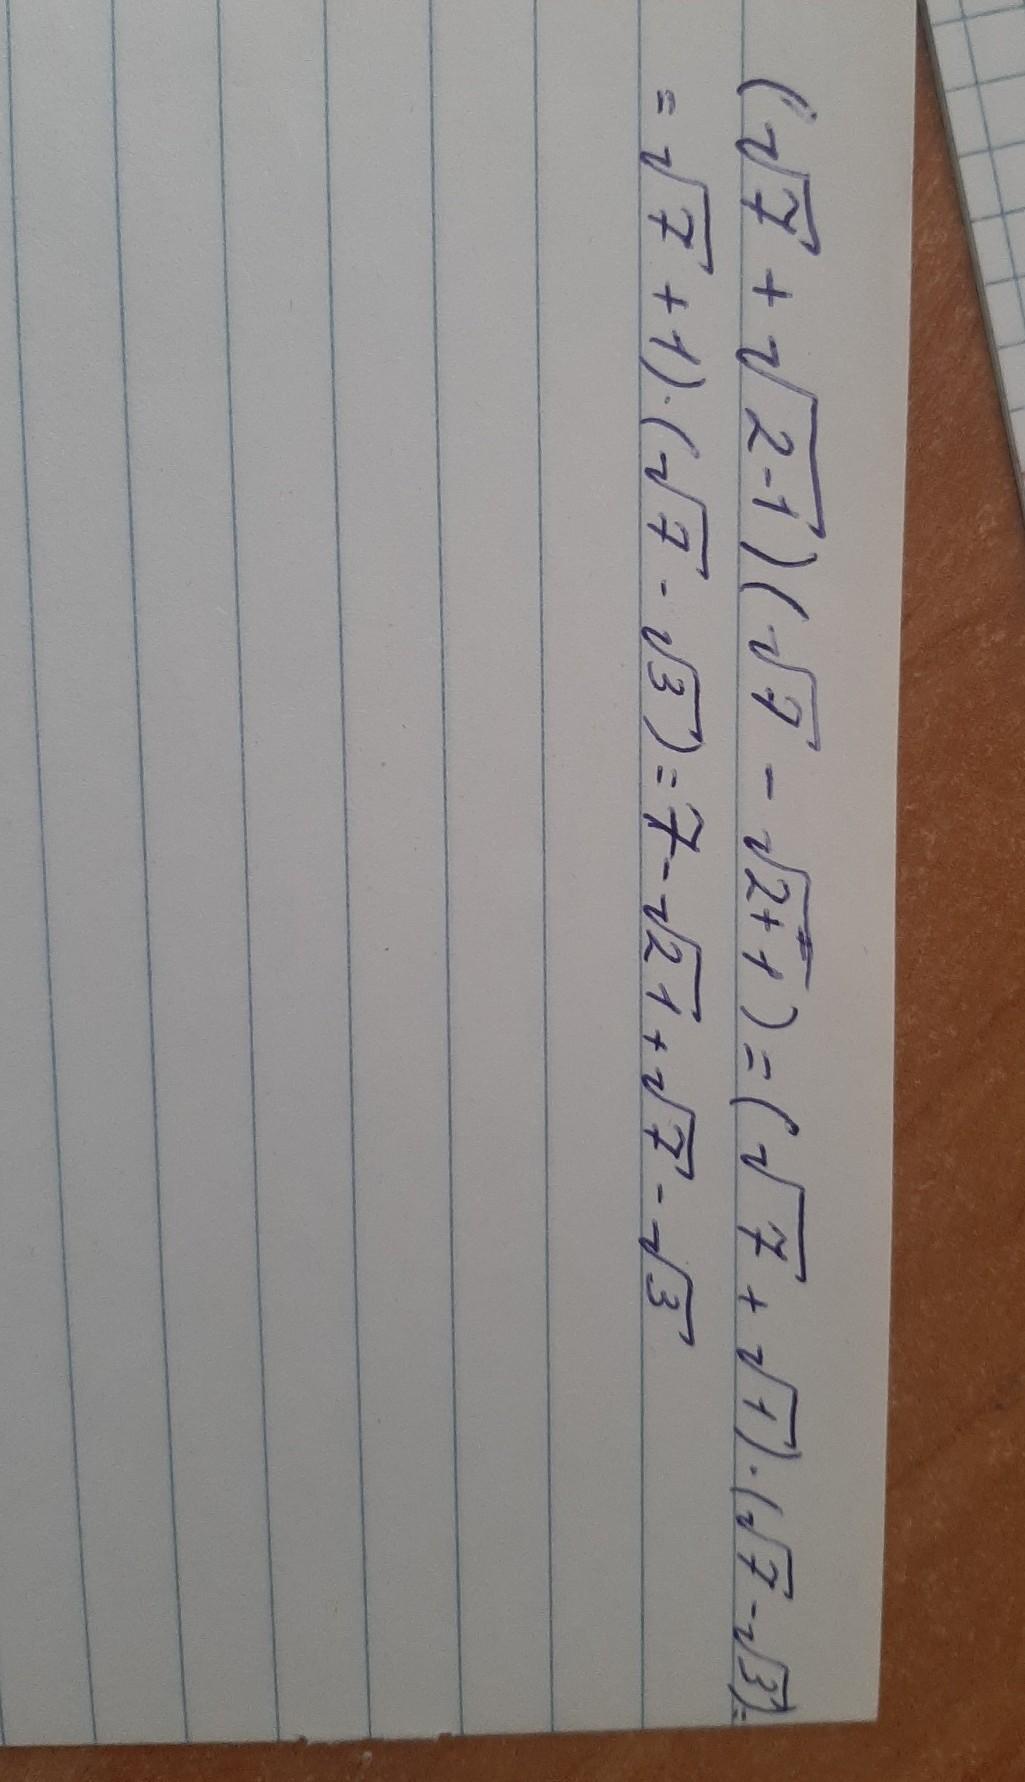 (√7 + √(2-1))(√7 - √(2+1)) = (√7 + √1)·(√7 - √3) =
= √7 + 1)·(√7 - √3) = 7 - √21 + √7 - √3